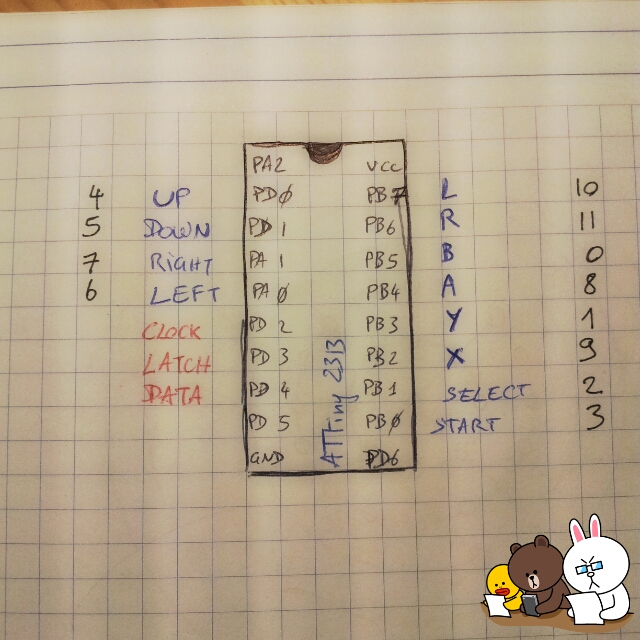 PA2 VCC
4 UP PDØ PB7 L 10
5 DOWN PD1 PB6 R 11
7 RIGHT PA1 PB5 B 0
6 LEFT PAØ PB4 A 8
CLOCK PD2 PB3 Y 1
LATCH PD3 PB2 X 9
DATA PD4 PB1 SELECT 2
PD5 PBØ START 3
GND PD6
ATTiny 2313